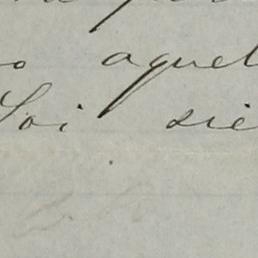 o aquel
Soi sie